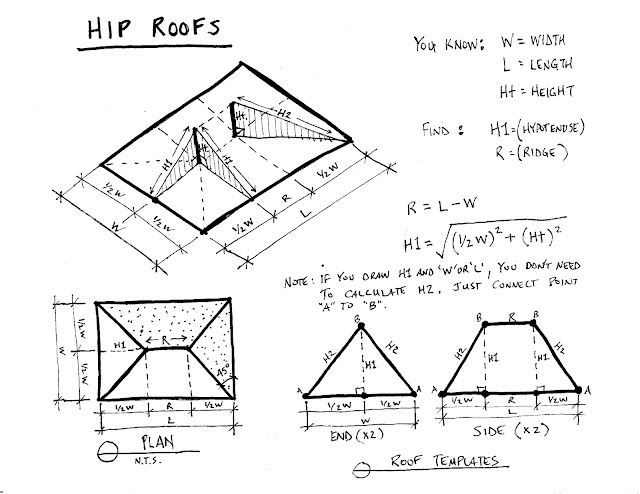 HIP ROOFS
YOU KNOW: W = WIDTH
L = LENGTH
Ht = HEIGHT
FIND: H1=(HYPOTENUSE)
R =(RIDGE)
Ht
H2
H1
Ht
H1
1/2 W
1/2 W
W
1/2 W
R
1/2 W
L
R = L-W
H1 = √(1/2W)² + (Ht)²
NOTE: IF YOU DRAW H1 AND 'W' OR 'L', YOU DON'T NEED
TO CALCULATE H2, JUST CONNECT POINT
"A" TO "B".
W
1/2 W
1/2 W
H1
R
45°
1/2W R 1/2W
L
PLAN
N.T.S.
B
H2 H1 H2
A A
1/2W 1/2W
W
END (x2)
B R B
H2 H1 H1 H2
A A
1/2W R 1/2W
L
SIDE (x2)
ROOF TEMPLATES